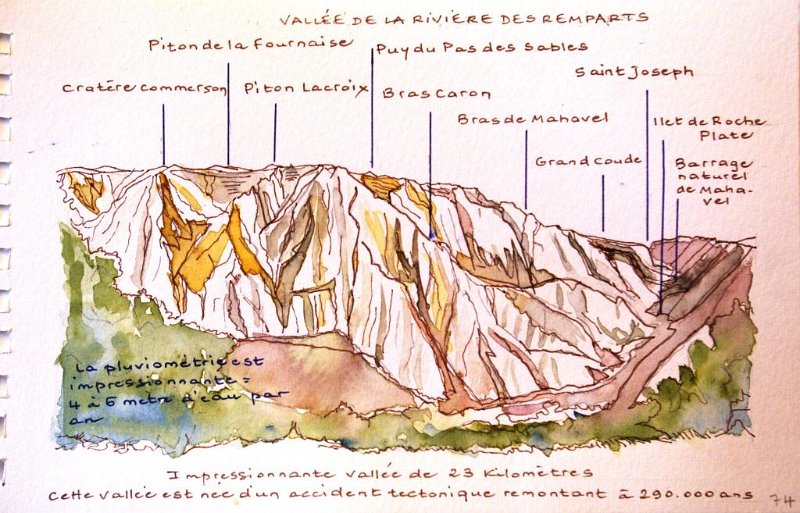 VALLÉE DE LA RIVIÈRE DES REMPARTS
Piton de la Fournaise
Puy du Pas des Sables
Saint Joseph
Cratère commerson
Piton Lacroix
Bras Caron
Bras de Mahavel
Ilet de Roche
Plate
Grand Coude
Barrage
naturel
de Maha-
vel
La pluviométrie est
impressionnante =
4 à 6 metre d'eau par
an
Impressionnante vallée de 23 Kilomètres
Cette vallée est née d'un accident tectonique remontant à 290.000 ans
74